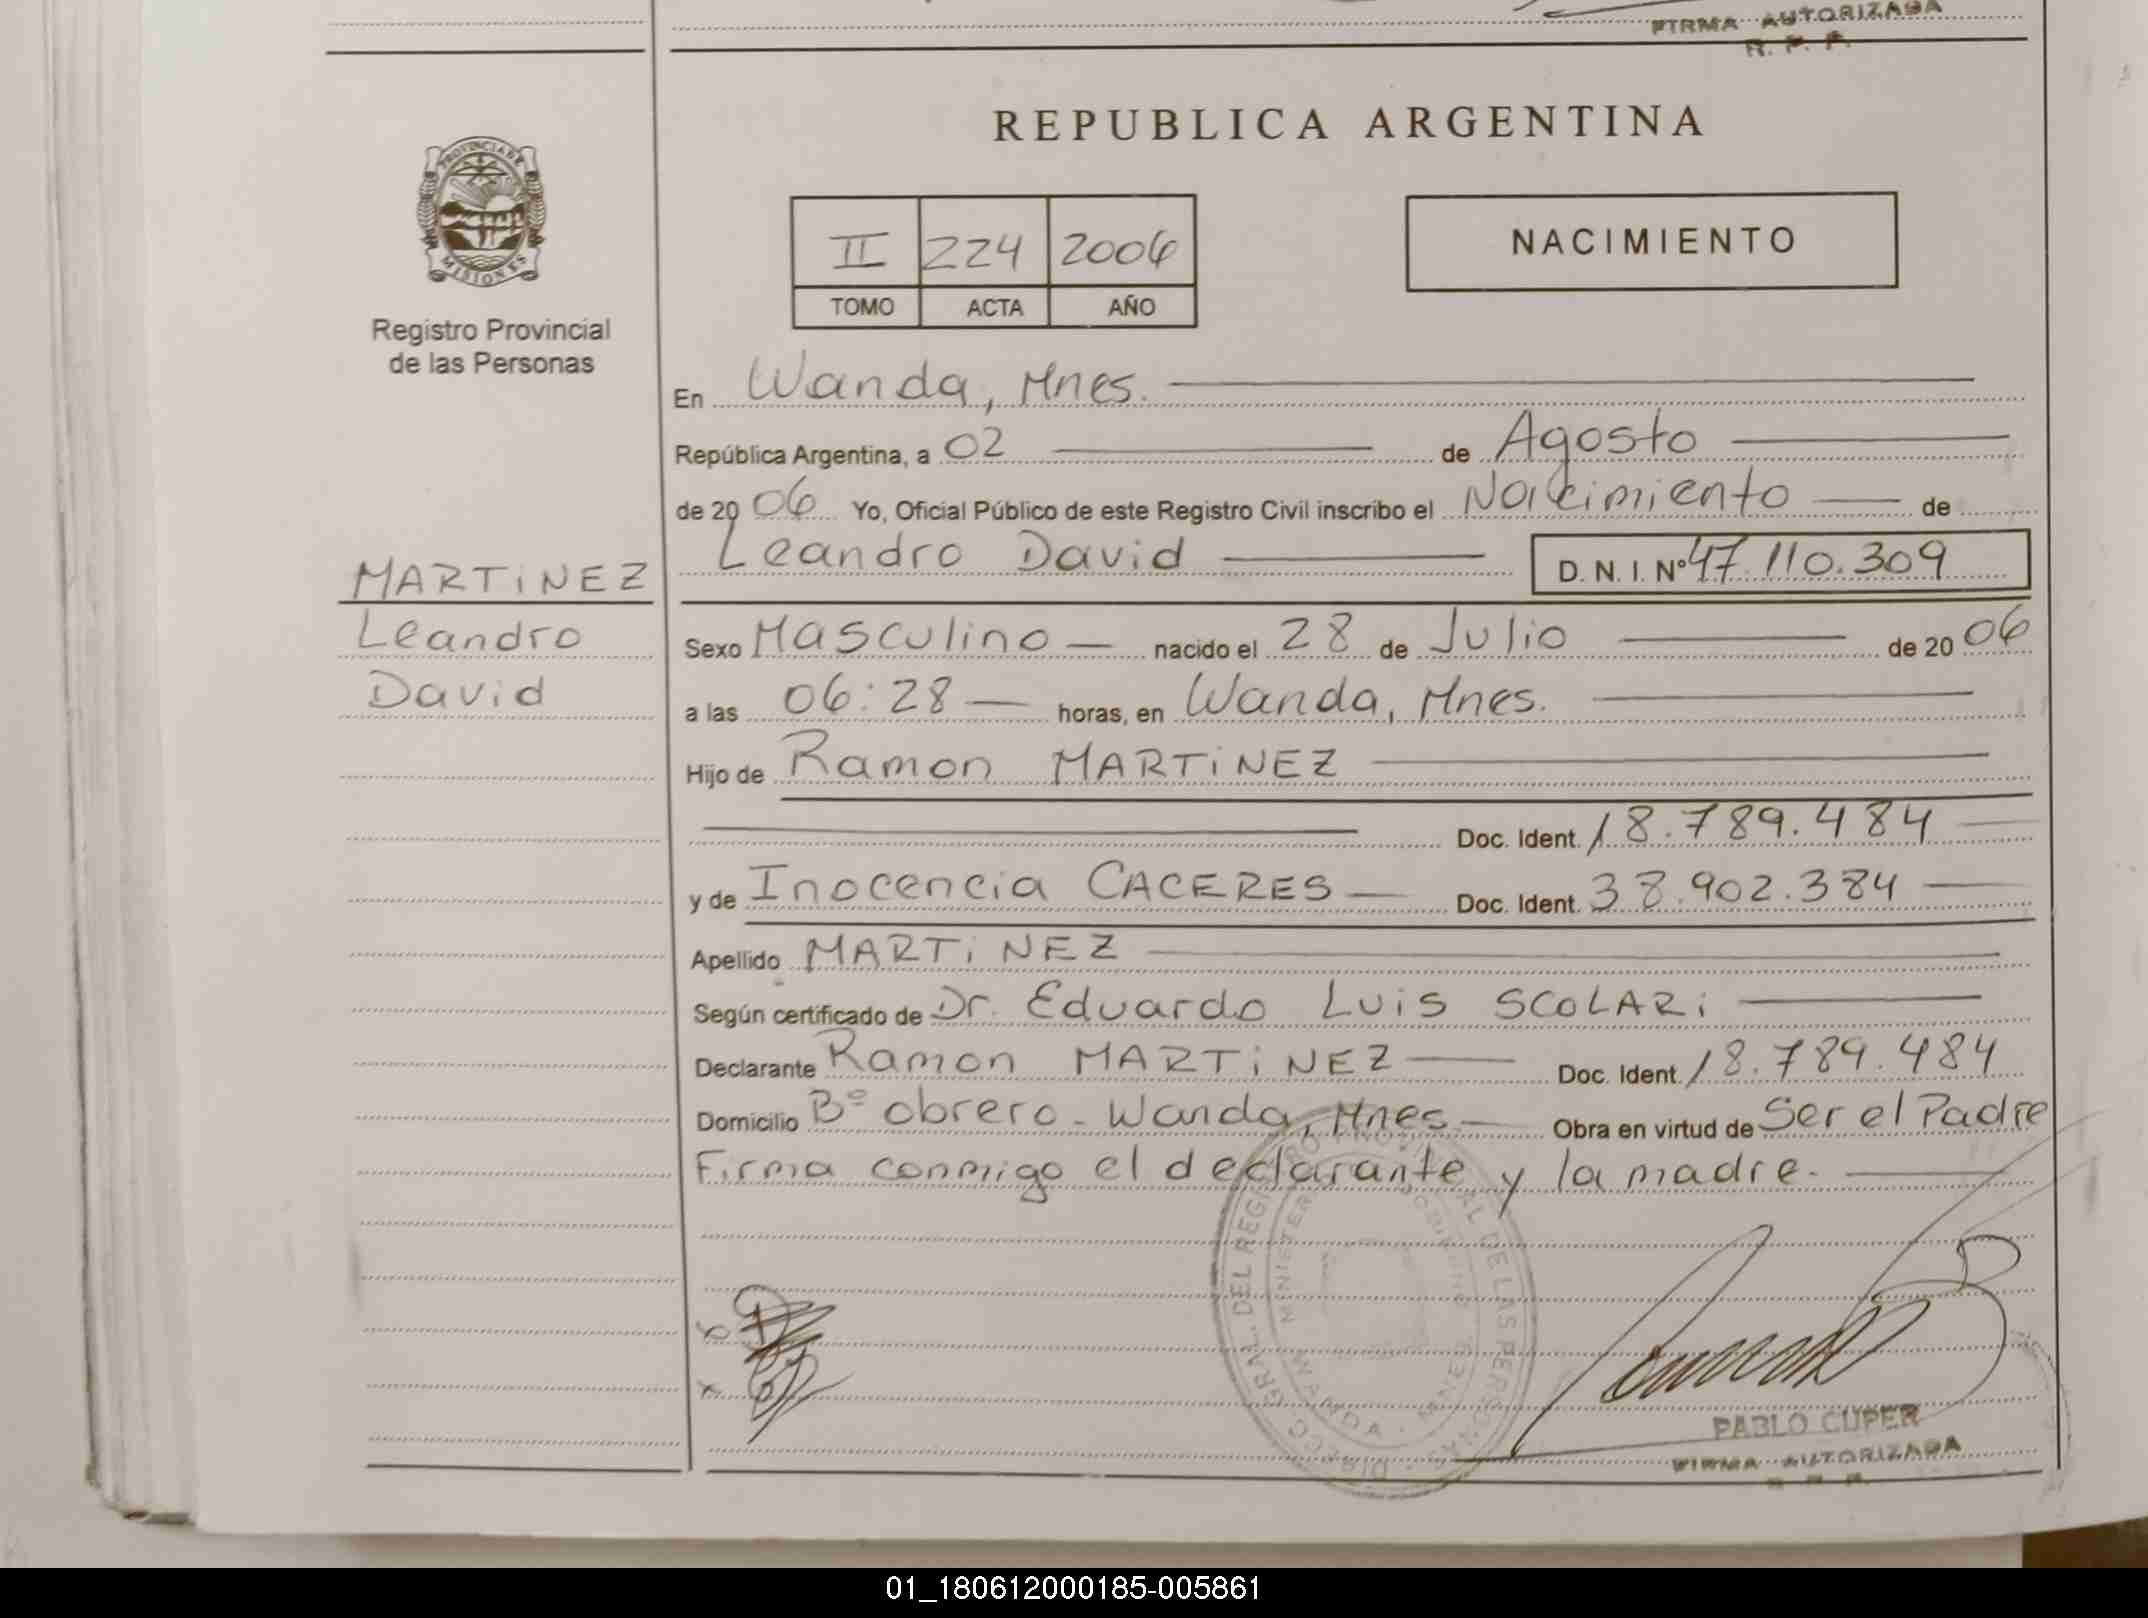 FIRMA AUTORIZADA
R. P. P.
PROVINCIA DE
MISIONES
Registro Provincial
de las Personas
MARTiNEZ
Leandro
David
REPUBLICA ARGENTINA
II 224 2006
TOMO ACTA AÑO
NACIMIENTO
En Wanda, Mnes.
República Argentina, a 02 de Agosto
de 2006 Yo, Oficial Público de este Registro Civil inscribo el Nacimiento de
Leandro David D. N. I. Nº 47.110.309
Sexo Masculino nacido el 28 de Julio de 2006
a las 06:28 horas, en Wanda, Mnes.
Hijo de Ramon MARTiNEZ
Doc. Ident. 18.789.484
y de Inocencia CACERES Doc. Ident. 38.902.384
Apellido MARTiNEZ
Según certificado de Dr. Eduardo Luis SCOLARi
Declarante Ramon MARTiNEZ Doc. Ident. 18.789.484
Domicilio Bº obrero - Wanda, Mnes. Obra en virtud de Ser el Padre
Firma conmigo el declarante y la madre.
WANDA - MNES.
PABLO CUPER
FIRMA AUTORIZADA
01_180612000185-005861